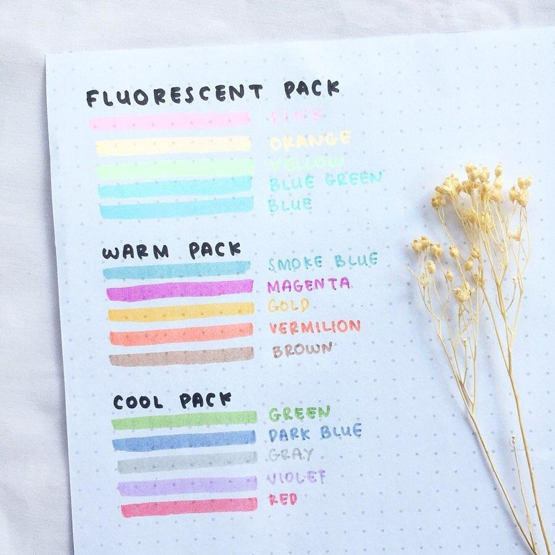 FLUORESCENT PACK
PINK
ORANGE
YELLOW
BLUE GREEN
BLUE
WARM PACK
SMOKE BLUE
MAGENTA
GOLD
VERMILION
BROWN
COOL PACK
GREEN
DARK BLUE
GRAY
VIOLET
RED